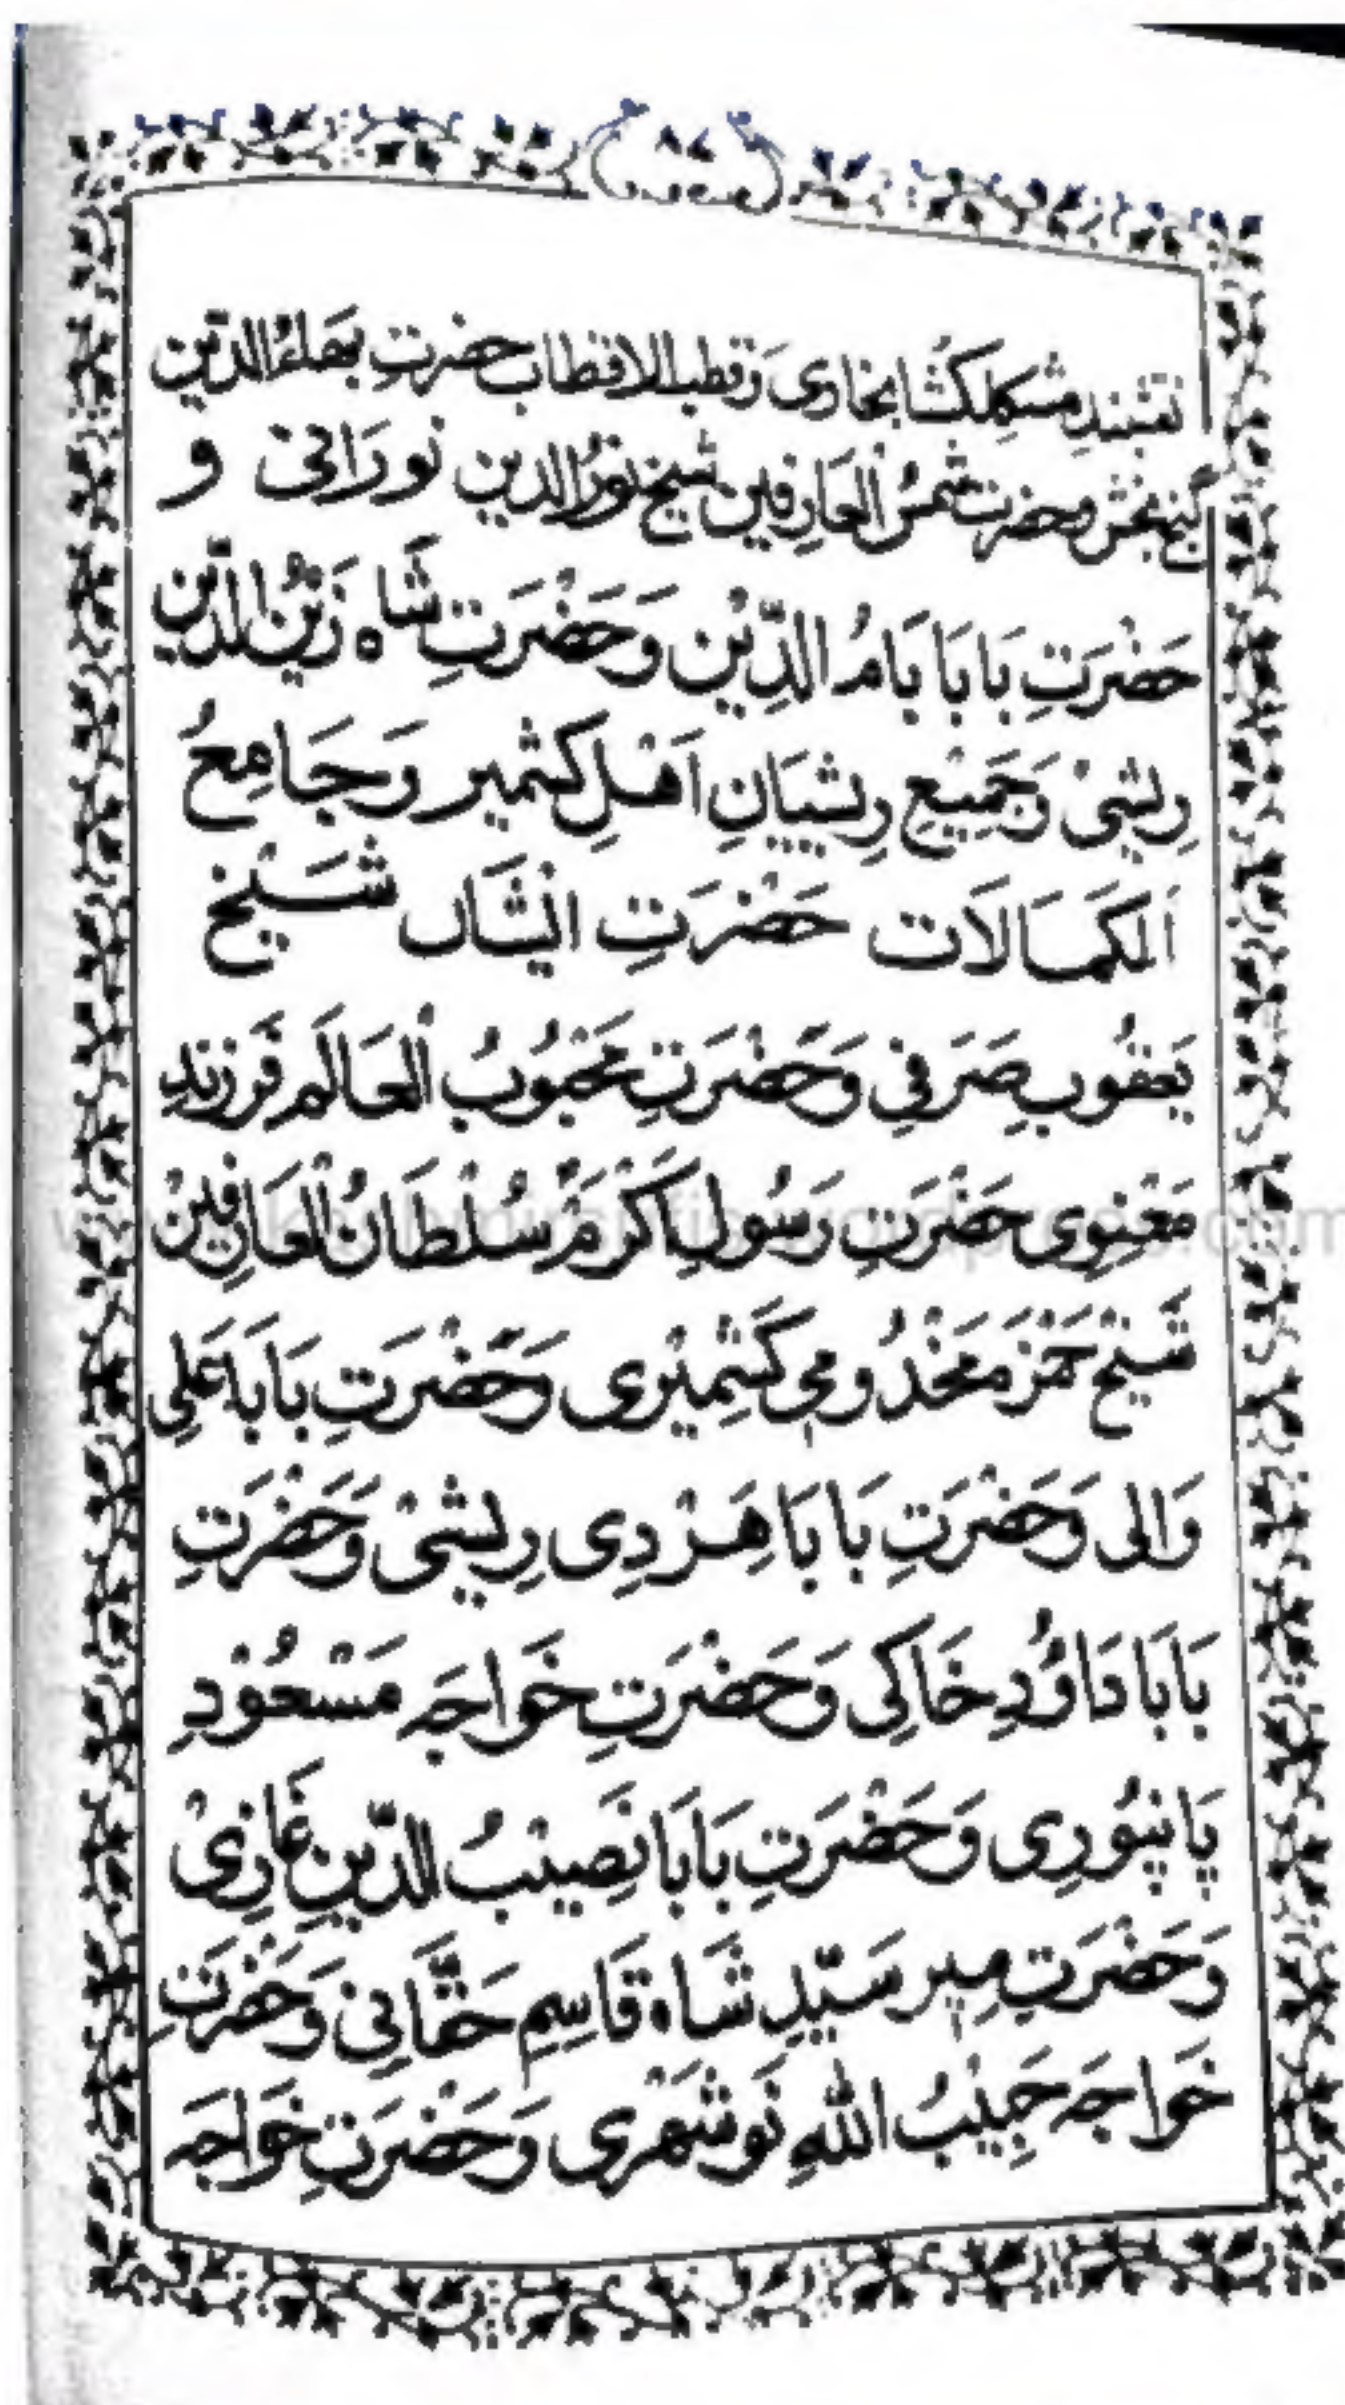 ۸۷
نقشبندِ مشکلکُشا بخاری وَ قطب الاقطاب حضرتِ بھاءُ الدّین
گنج بخش و حضرت شمسُ العَارِفین شیخ نُورُ الدین نُورَانی و
حَضْرَتِ بَابَا بَامُ الدِّیْن وَحَضْرَتِ شَاہ زَیْنُ الدِّین
رِیشیْ وَجَمِیْعِ رِیشِیَانِ اَھْلِ کشمیر وَجَامِعُ
اَلکَمَالَات حَضْرَتِ ایْشَاں شَیْخ
یَعقُوب صَرَفِی وَحَضْرَتِ مَحْبُوبُ الْعَالَم فَرزندِ
مَعْنوِی حَضْرَتِ رَسُولِ اَکْرَمْ سُلْطَانُ الْعَارِفِیْن
شَیخْ حَمْزَہ مَخْدُومِی کَشْمِیْرِی وَحَضْرَتِ بَابَا عَلِی
وَالی وَحَضْرَتِ بَابَا ھَرْدِی رِیشیْ وَحَضْرَتِ
بَابَا دَاوُدِ خَاکِی وَحَضْرَتِ خَواجَہ مَسْعُوْدِ
پَانپُورِی وَحَضْرَتِ بَابَا نَصِیْبُ الدِّیْنِ غَازِیْ
وَحَضْرَتِ مِیر سَیِّد شَاہ قَاسِمِ حَقَّانِی وَحَضْرَتِ
خَواجَہ حَبِیْبُ اللّٰہِ نَوشَھْرِی وَحَضْرَتِ خَواجَہ